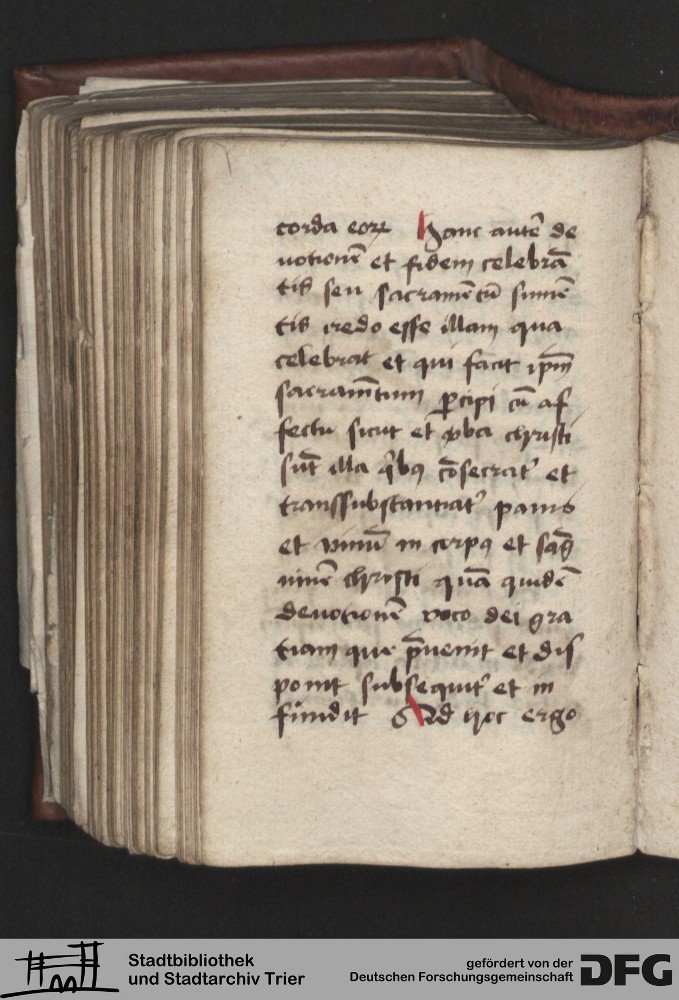 corda eoꝝ Hanc autē de
uotionē et fidem celebrā
tis seu sacramētū sumē
tis credo esse illam qua
celebrat et qui facit ip̄m
sacram̄tum ꝑcipi cū af
fectu sicut et v̓ba christi
sūt illa q̓bꝯ cōsecrat᷑ et
transsubstantiat᷑ panis
et vinū in corpꝯ et sāg
uinē christi quā quidē
deuotionē voco dei gra
tiam que p̄uenit et dis
ponit subsequit᷑ et in
fundit Ad hoc ergo
Stadtbibliothek
und Stadtarchiv Trier
gefördert von der
Deutschen Forschungsgemeinschaft
DFG